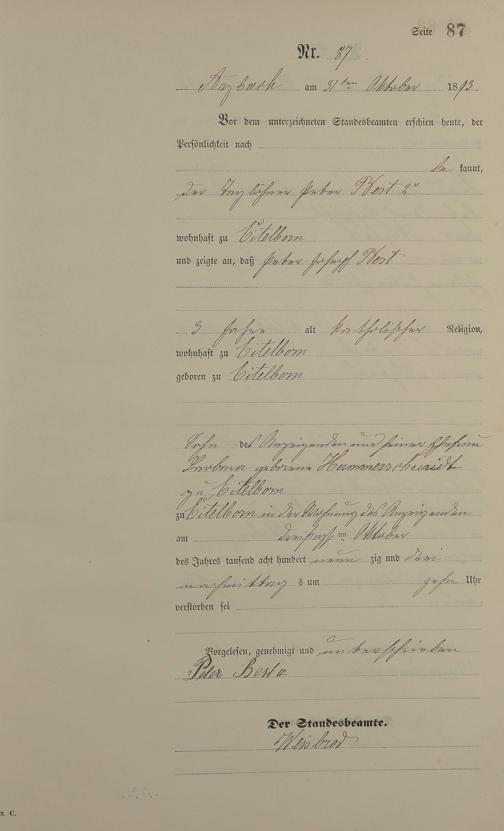 Seite 87
Nr. 87.
Arzbach am 31ten Oktober 1893
Vor dem unterzeichneten Standesbeamten erschien heute, der
Persönlichkeit nach
be kannt,
der Taglöhner Peter Best 2r
wohnhaft zu Eitelborn
und zeigte an, daß Peter Joseph Best
3 Jahre alt katholischer Religion,
wohnhaft zu Eitelborn
geboren zu Eitelborn
Sohn des Anzeigenden und seiner Ehefrau
geborene Hammerscheidt
zu Eitelborn
zu Eitelborn in der Wohnung des Anzeigenden
am dreißigsten Oktober
des Jahres tausend acht hundert neun zig und drei
nachmittag s um zehn Uhr
verstorben sei
Vorgelesen, genehmigt und unterschrieben
Peter Best
Der Standesbeamte.
Weisbrod
C.